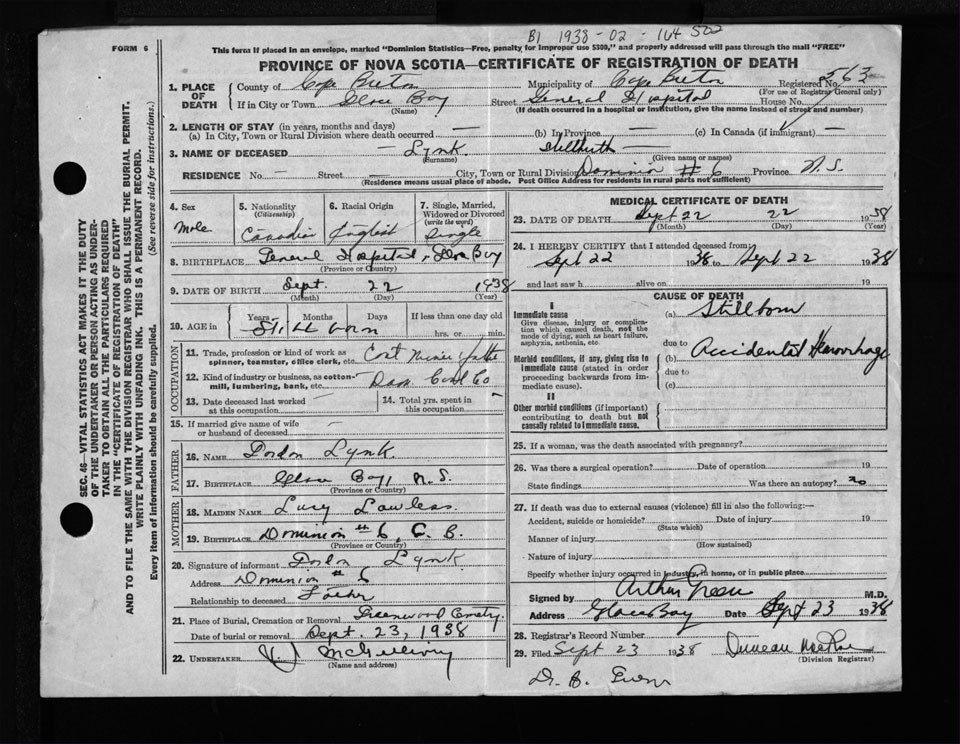 B1 1938-02-164502
FORM 6
This form if placed in an envelope, marked "Dominion Statistics—Free, penalty for improper use $300," and properly addressed will pass through the mail "FREE"
PROVINCE OF NOVA SCOTIA—CERTIFICATE OF REGISTRATION OF DEATH
SEC. 46—VITAL STATISTICS ACT MAKES IT THE DUTY
OF THE UNDERTAKER OR PERSON ACTING AS UNDER-
TAKER TO OBTAIN ALL THE PARTICULARS REQUIRED
IN THE "CERTIFICATE OF REGISTRATION OF DEATH"
AND TO FILE THE SAME WITH THE DIVISION REGISTRAR WHO SHALL ISSUE THE BURIAL PERMIT.
WRITE PLAINLY WITH UNFADING INK. THIS IS A PERMANENT RECORD.
Every item of information should be carefully supplied. (See reverse side for instructions.)
1. PLACE OF DEATH
County of Cape Breton Municipality of Cape Breton Registered No. 563
(For use of Registrar General only)
If in City or Town Glace Bay Street General Hospital House No.
(Name) (If death occurred in a hospital or institution, give the name instead of street and number)
2. LENGTH OF STAY (in years, months and days)
(a) In City, Town or Rural Division where death occurred — (b) In Province — (c) In Canada (if immigrant) —
3. NAME OF DECEASED — Lynk
(Surname) (Given name or names)
RESIDENCE No. — Street — City, Town or Rural Division Dominion #6 Province N.S.
(Residence means usual place of abode. Post Office Address for residents in rural parts not sufficient)
4. Sex Male
5. Nationality (Citizenship) Canadian
6. Racial Origin English
7. Single, Married, Widowed or Divorced (write the word) Single
8. BIRTHPLACE General Hospital, Glace Bay
(Province or Country)
9. DATE OF BIRTH Sept. 22 1938
(Month) (Day) (Year)
10. AGE in Years Months Days If less than one day old
Still born hrs. or min.
OCCUPATION
11. Trade, profession or kind of work as spinner, teamster, office clerk, etc. Coal Miner
12. Kind of industry or business, as cotton-mill, lumbering, bank, etc. Dom. Coal Co
13. Date deceased last worked at this occupation —
14. Total yrs. spent in this occupation —
15. If married give name of wife or husband of deceased —
FATHER
16. NAME Gordon Lynk
17. BIRTHPLACE Glace Bay, N.S.
(Province or Country)
MOTHER
18. MAIDEN NAME Lucy Lawless
19. BIRTHPLACE Dominion #6, C.B.
(Province or Country)
20. Signature of informant Gordon Lynk
Address Dominion #6
Relationship to deceased Father
21. Place of Burial, Cremation or Removal Greenwood Cemetry
Date of burial or removal Sept. 23, 1938
22. UNDERTAKER
(Name and address)
MEDICAL CERTIFICATE OF DEATH
23. DATE OF DEATH Sept 22 22 1938
(Month) (Day) (Year)
24. I HEREBY CERTIFY that I attended deceased from:
Sept 22 1938 to Sept 22 1938
and last saw h alive on 19
CAUSE OF DEATH
I
Immediate cause
Give disease, injury or complication which caused death, not the mode of dying, such as heart failure, asphyxia, asthenia, etc.
(a) Stillborn
due to
Morbid conditions, if any, giving rise to immediate cause (stated in order proceeding backwards from immediate cause).
(b) Accidental Hemorrhage
due to
(c)
II
Other morbid conditions (if important) contributing to death but not causally related to immediate cause.
25. If a woman, was the death associated with pregnancy?
26. Was there a surgical operation? Date of operation 19
State findings Was there an autopsy? no
27. If death was due to external causes (violence) fill in also the following:—
Accident, suicide or homicide? Date of injury 19
(State which)
Manner of injury
(How sustained)
Nature of injury
Specify whether injury occurred in industry, in home, or in public place
Signed by Arthur M.D.
Address Glace Bay Date Sept 23 1938
28. Registrar's Record Number
29. Filed Sept 23 1938 Duncan
(Division Registrar)